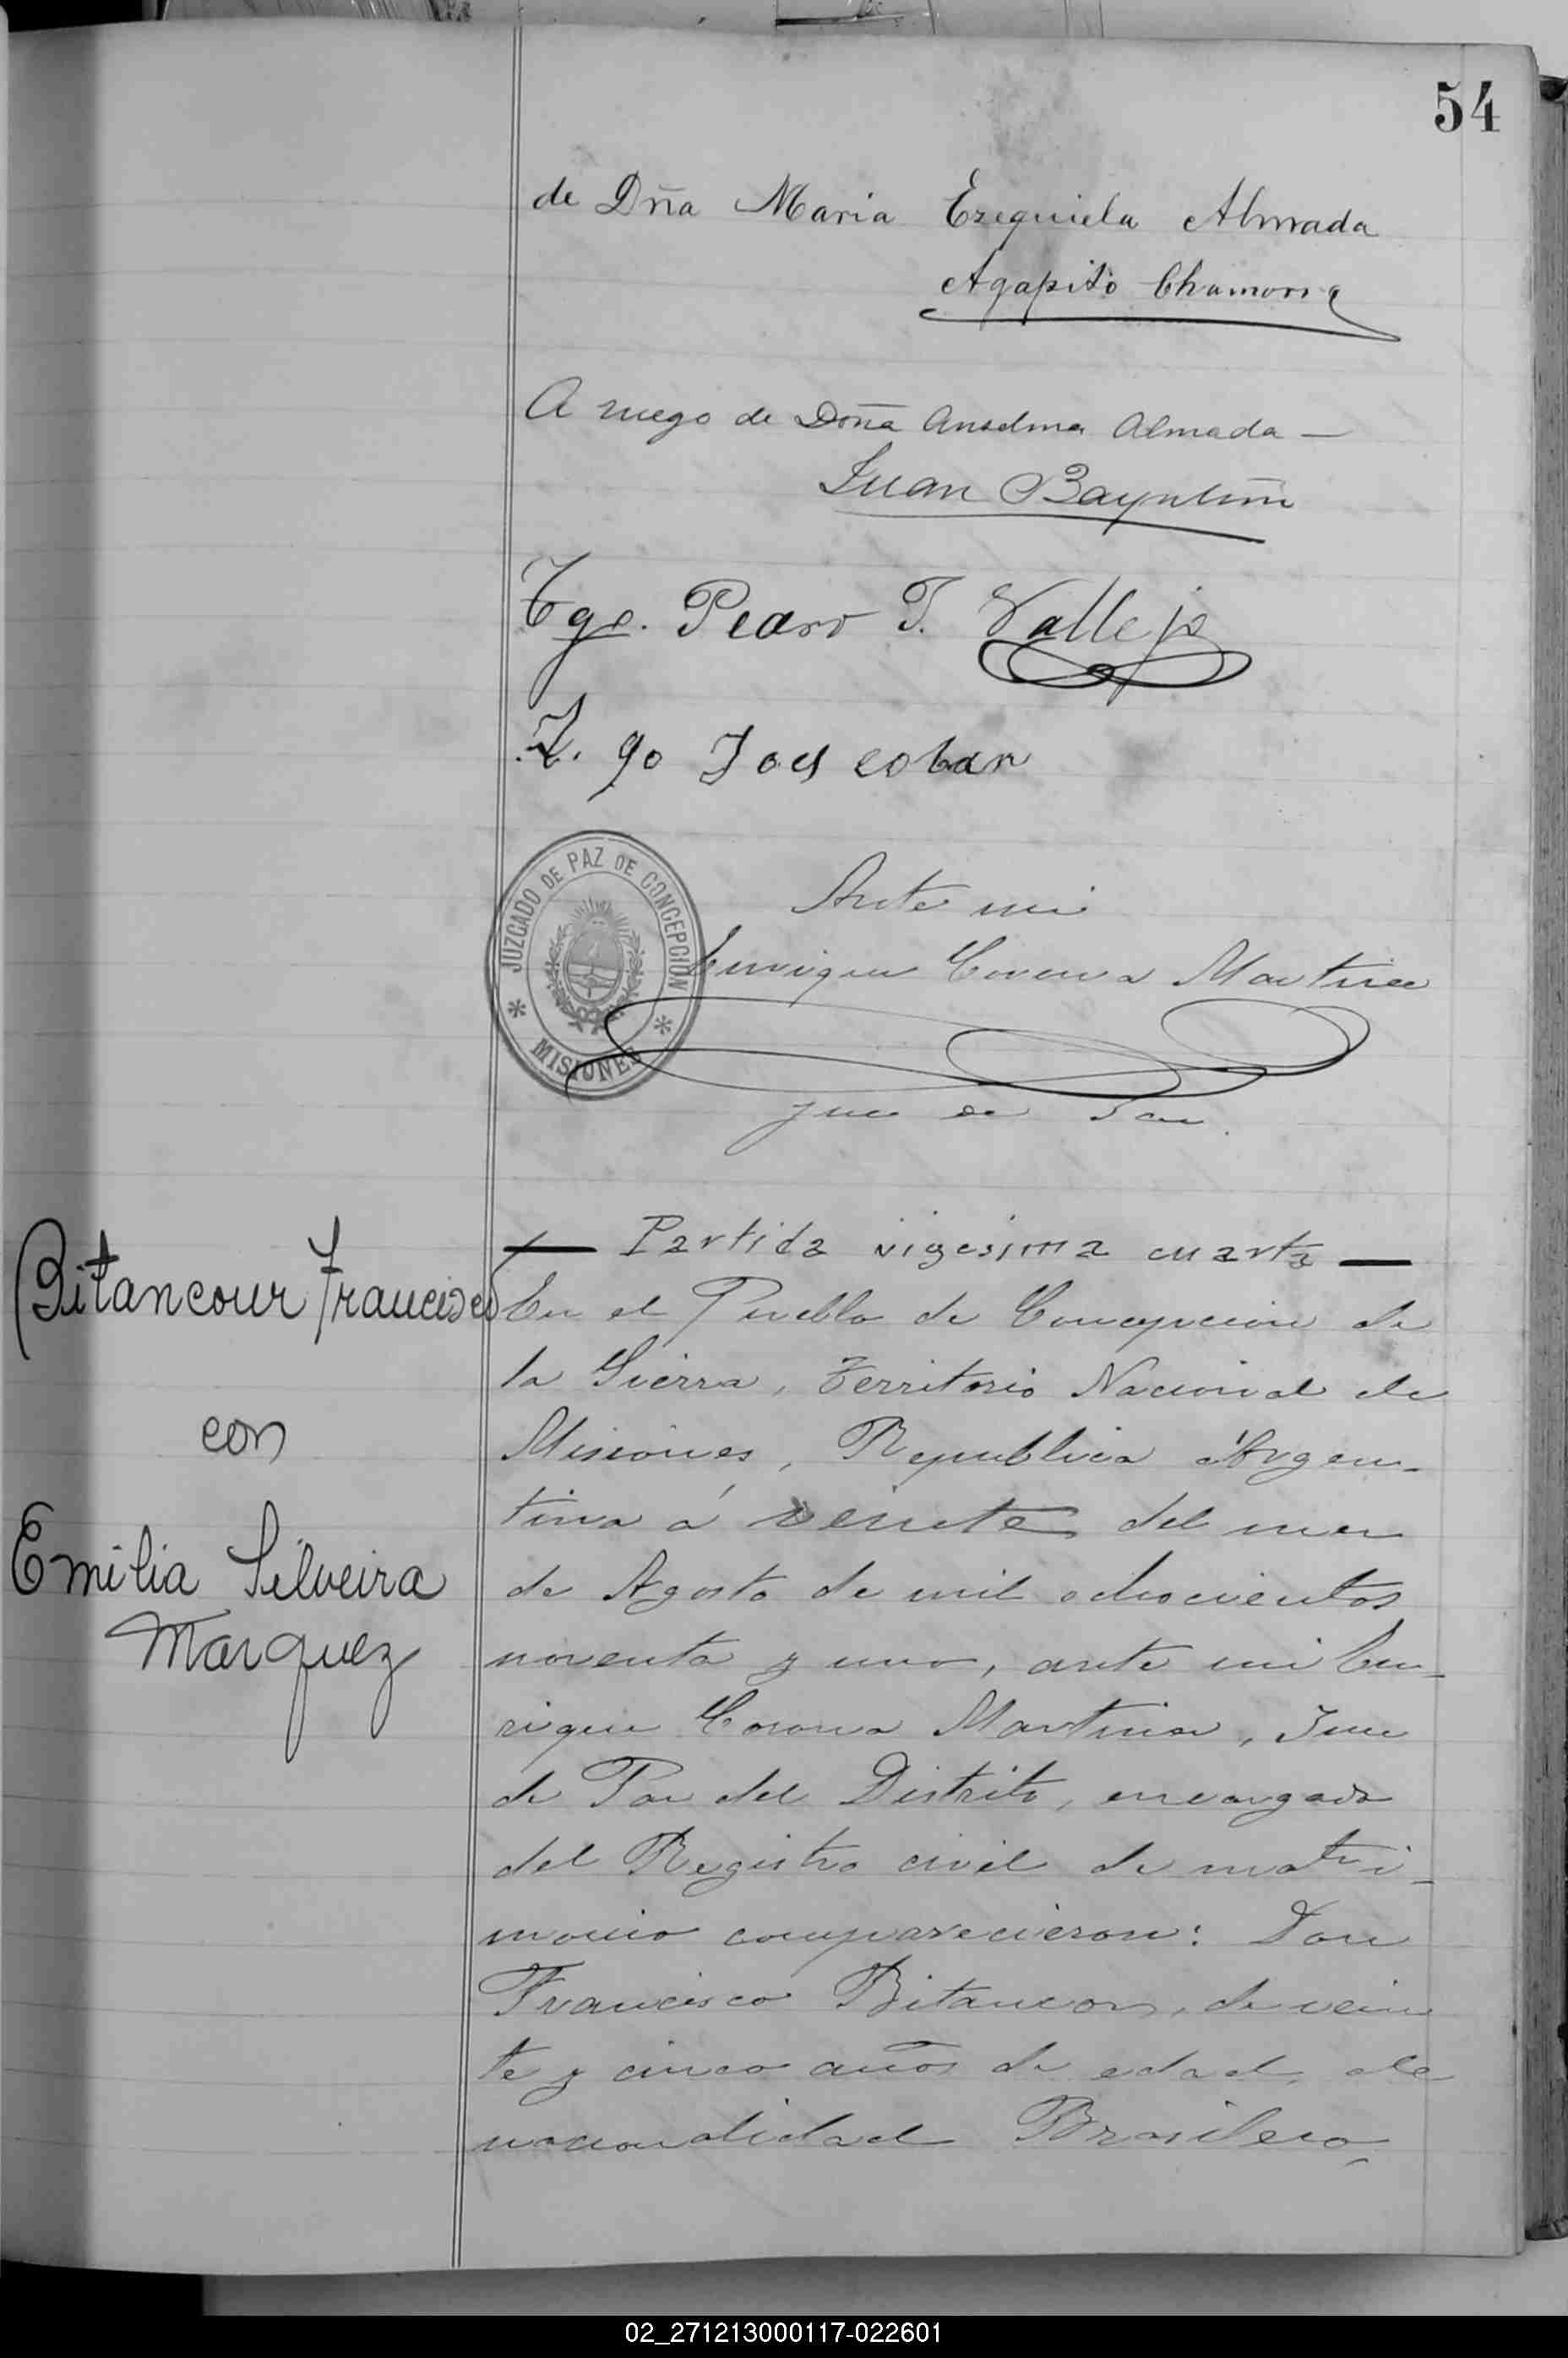 54
de Dña Maria Ezequiela Almada
Agapito Chamorra
A ruego de Doña Anselma Almada —
Juan Bayntun
Tgo. Pedro T. Vallejo
T. go J escobar
JUZGADO DE PAZ DE CONCEPCIÓN
* MISIONES *
Ante mi
Enrique Corona Martinez
Juez de Paz.
— Partida vigesima cuarta —
Bitancour Francisco
con
Emilia Silveira
Marquez
En el Pueblo de Concepcion de
la Sierra, Territorio Nacional de
Misiones, Republica Argen-
tina á veinte del mes
de Agosto de mil ochocientos
noventa y uno, ante mi En-
rique Corona Martinez, Juez
de Paz del Distrito, encargado
del Registro civil de matri-
monio comparecieron: Don
Francisco Bitancor, de vein
te y cinco años de edad, de
nacionalidad Brasilero,
02_271213000117-022601